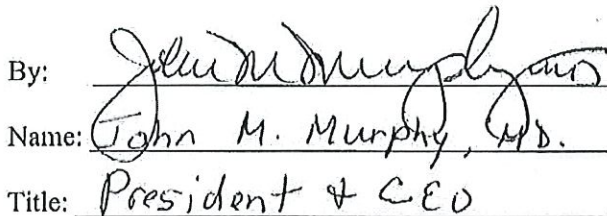 By: John M Murphy MD
Name: John M. Murphy, MD.
Title: President & CEO